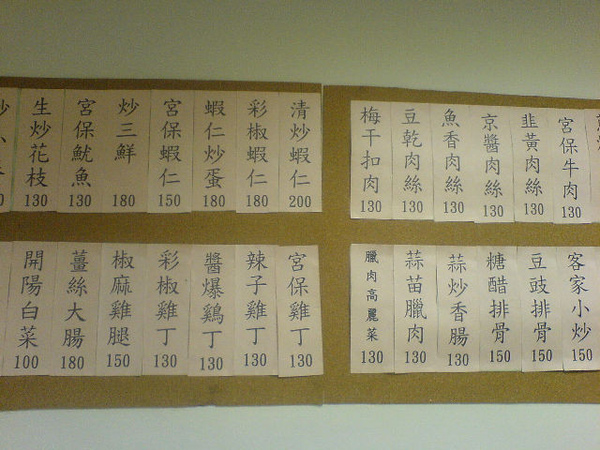 清炒蝦仁 200
彩椒蝦仁 180
蝦仁炒蛋 180
宮保蝦仁 150
炒三鮮 180
宮保魷魚 130
生炒花枝 130
宮保牛肉 130
韭黃肉絲 130
京醬肉絲 130
魚香肉絲 130
豆乾肉絲 130
梅干扣肉 130
宮保雞丁 130
辣子雞丁 130
醬爆鷄丁 130
彩椒雞丁 130
椒麻雞腿 150
薑絲大腸 180
開陽白菜 100
客家小炒 150
豆豉排骨 150
糖醋排骨 150
蒜炒香腸 130
蒜苗臘肉 130
臘肉高麗菜 130